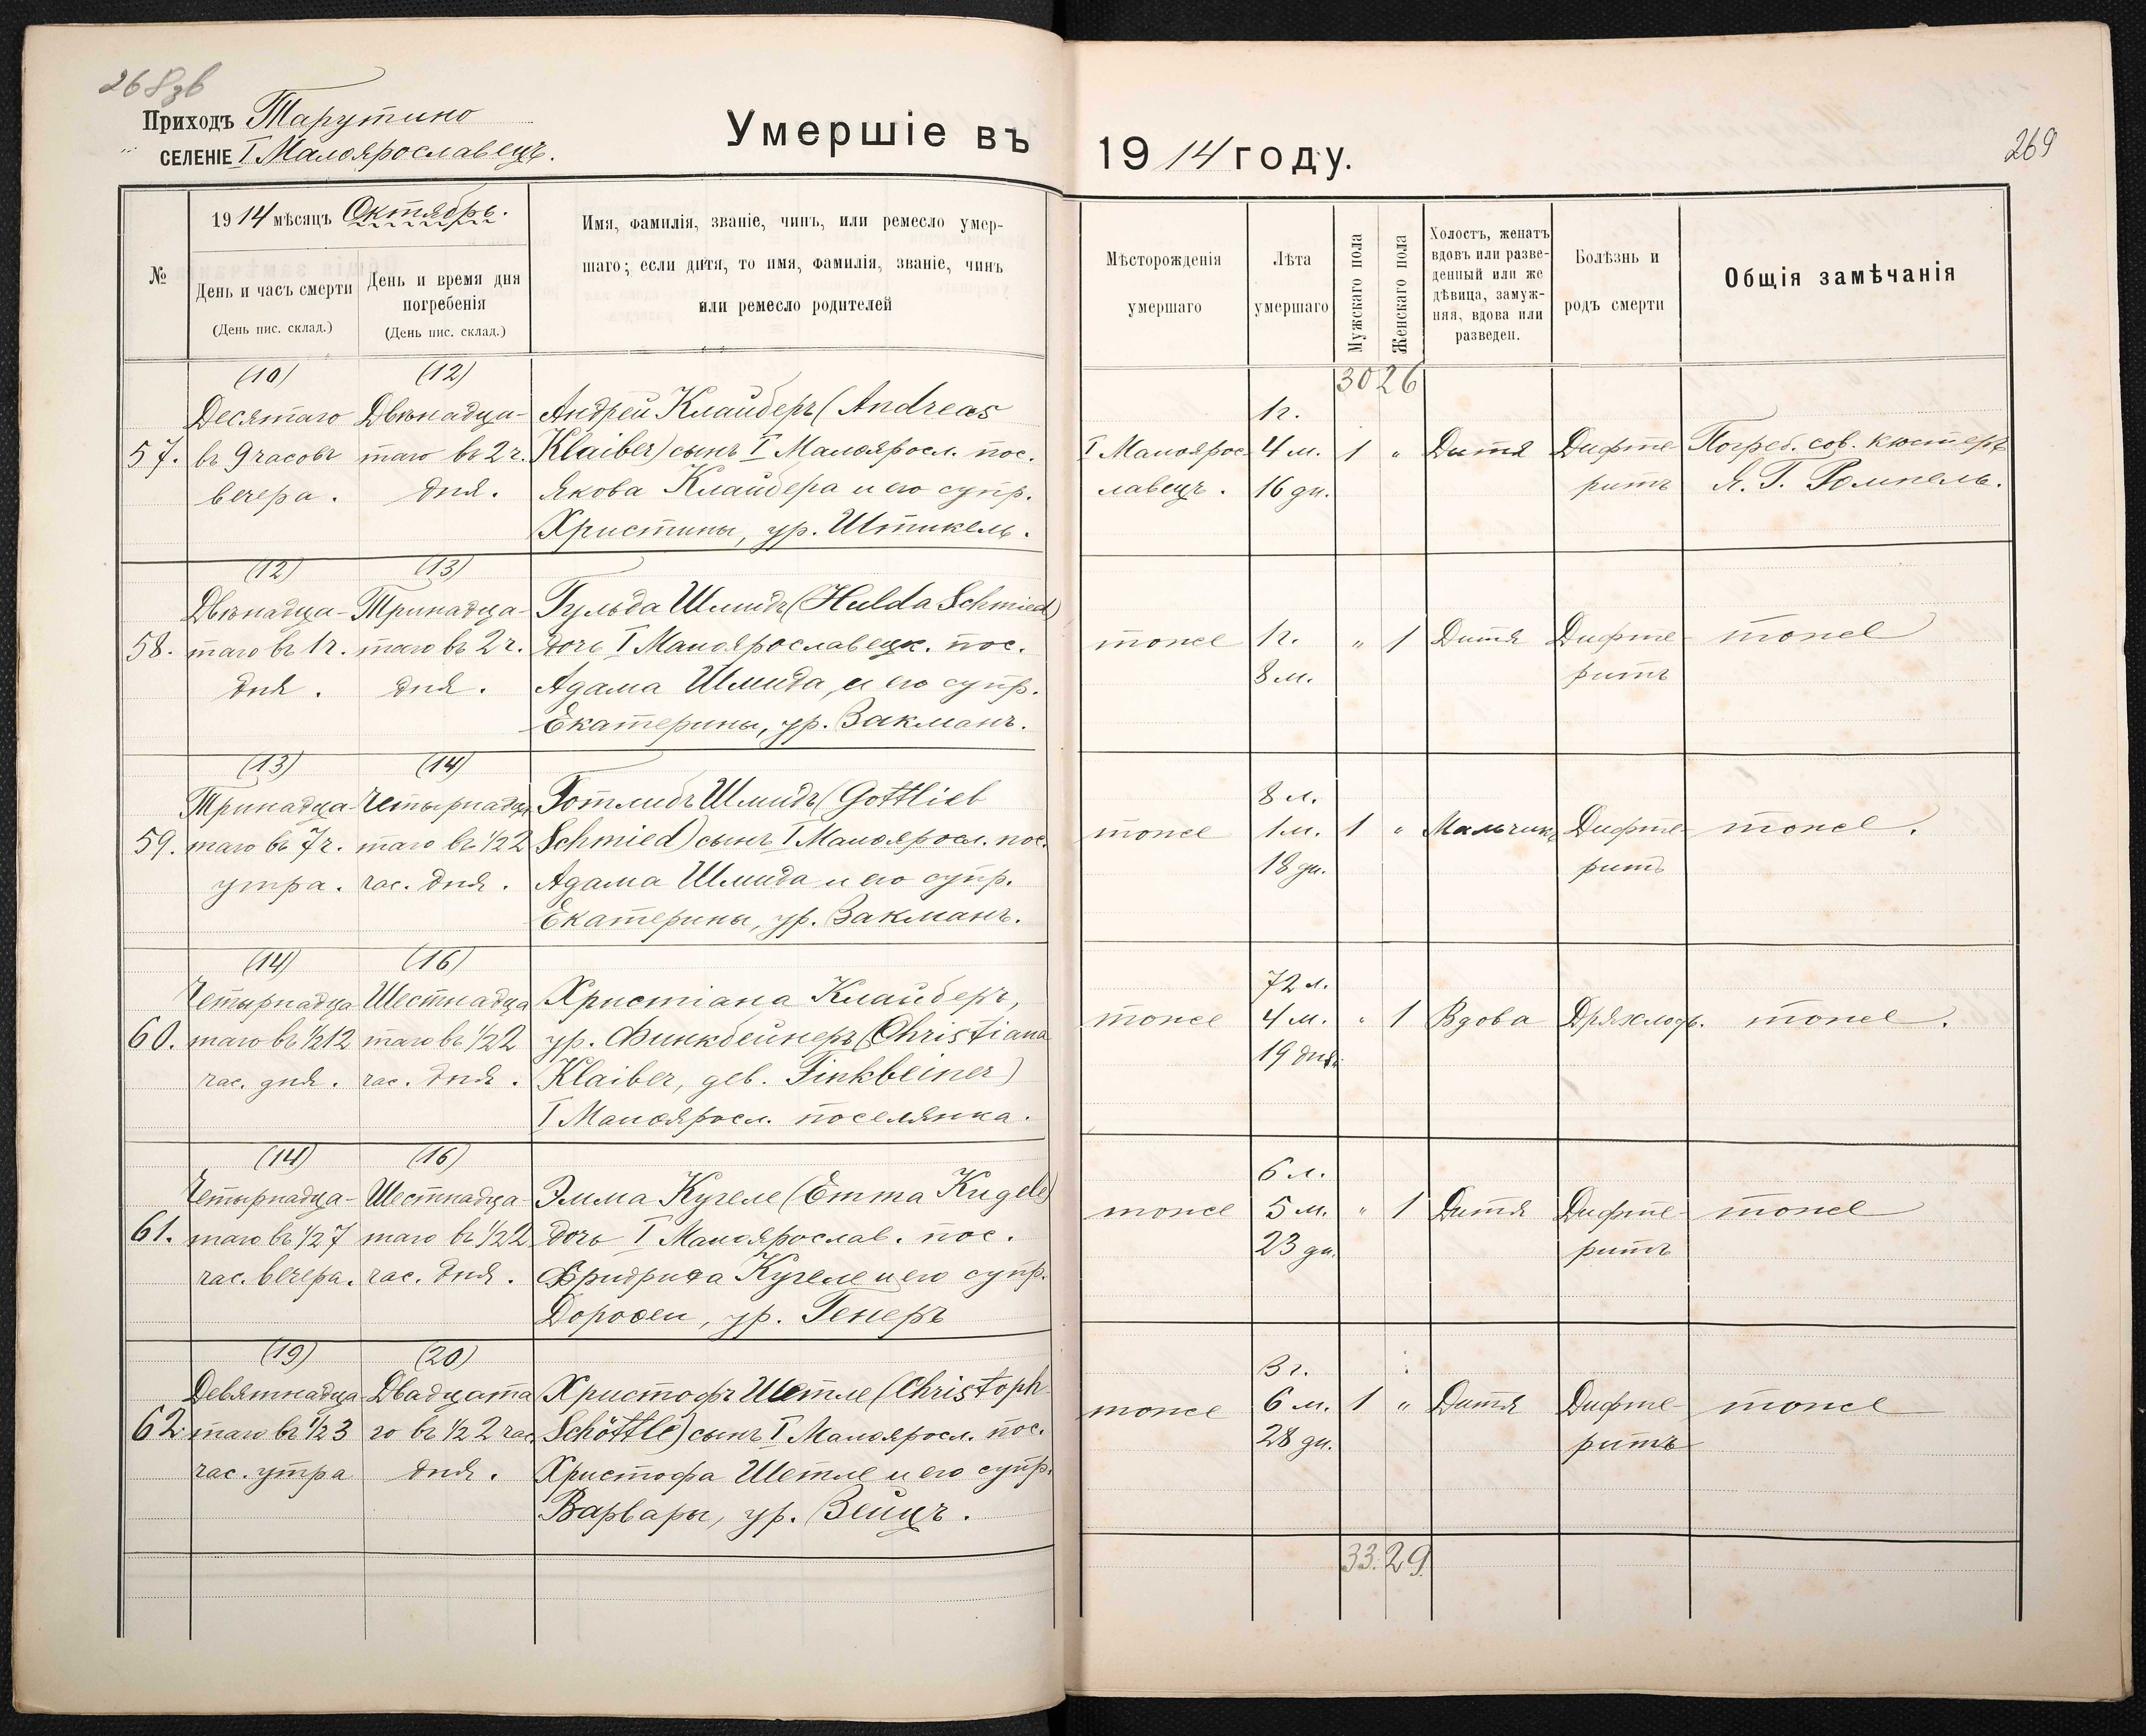 268 зв
Приходъ Тарутино
СЕЛЕНІЕ I Малоярославецъ.
Умершіе въ 1914 году.
269
№
1914 мѣсяцъ Октябрь.
День и часъ смерти
(День пис. склад.)
День и время дня
погребенія
(День пис. склад.)
Имя, фамилія, званіе, чинъ, или ремесло умер-
шаго; если дитя, то имя, фамилія, званіе, чинъ
или ремесло родителей
Мѣсторожденія
умершаго
Лѣта
умершаго
Мужскаго пола
Женскаго пола
Холостъ, женатъ
вдовъ или разве-
денный или же
дѣвица, замуж-
няя, вдова или
разведен.
Болѣзнь и
родъ смерти
Общія замѣчанія
30 26
57.
(10)
Десятаго
въ 9 часовъ
вечера.
(12)
Двѣнадца-
таго въ 2 ч.
дня.
Андрей Клайберъ (Andreas
Klaiber) сынъ I Малояросл. пос.
Якова Клайбера и его супр.
Христины, ур. Штикель.
I Малоярос
лавецъ.
1 г.
4 м.
16 дн.
1 "
Дитя
Дифте-
ритъ
Погреб. сов. кюстеръ
Я. Г. Ромпель.
58.
(12)
Двѣнадца-
таго въ 1 ч.
дня.
(13)
Тринадца-
таго въ 2 ч.
дня.
Гульда Шмидъ (Hulda Schmied)
дочь I Малоярославецк. пос.
Адама Шмида, и его супр.
Екатерины, ур. Закманъ.
тоже
1 г.
8 м.
" 1
Дитя
Дифте-
ритъ
тоже
59.
(13)
Тринадца-
таго въ 7 ч.
утра.
(14)
Четырнадца
таго въ 1/2 2
час. дня.
Готлибъ Шмидъ (Gottlieb
Schmied) сынъ I Малояросл. пос.
Адама Шмида и его супр.
Екатерины, ур. Закманъ.
тоже
8 л.
1 м.
18 дн.
1 "
Мальчикъ
Дифте-
ритъ
тоже.
60.
(14)
Четырнадца
таго въ 1/2 12
час. дня.
(16)
Шестнадца
таго въ 1/2 2
час. дня.
Христіана Клайберъ,
ур. Финкбейнеръ (Christiana
Klaiber, geb. Finkbeiner)
I Малояросл. поселянка.
тоже
72 л.
4 м.
19 дня.
" 1
Вдова
Дряхлось.
тоже.
61.
(14)
Четырнадца-
таго въ 1/2 7
час. вечера.
(16)
Шестнадца-
таго въ 1/2 2
час. дня.
Эмма Кугеле (Emma Kugele)
дочь I Малоярослав. пос.
Фридриха Кугеле и его супр.
Доροѳеи, ур. Генеръ
тоже
6 л.
5 м.
23 дн.
" 1
Дитя
Дифте-
ритъ
тоже
62.
(19)
Девятнадца
таго въ 1/2 3
час. утра
(20)
Двадцата
го въ 1/2 2 час.
дня.
Христофъ Шетле (Christoph
Schöttle) сынъ I Малояросл. пос.
Христофа Шетле и его супр.
Варвары, ур. Зейцъ.
тоже
3 г.
6 м.
28 дн.
1 "
Дитя
Дифте-
ритъ
тоже
33. 29.